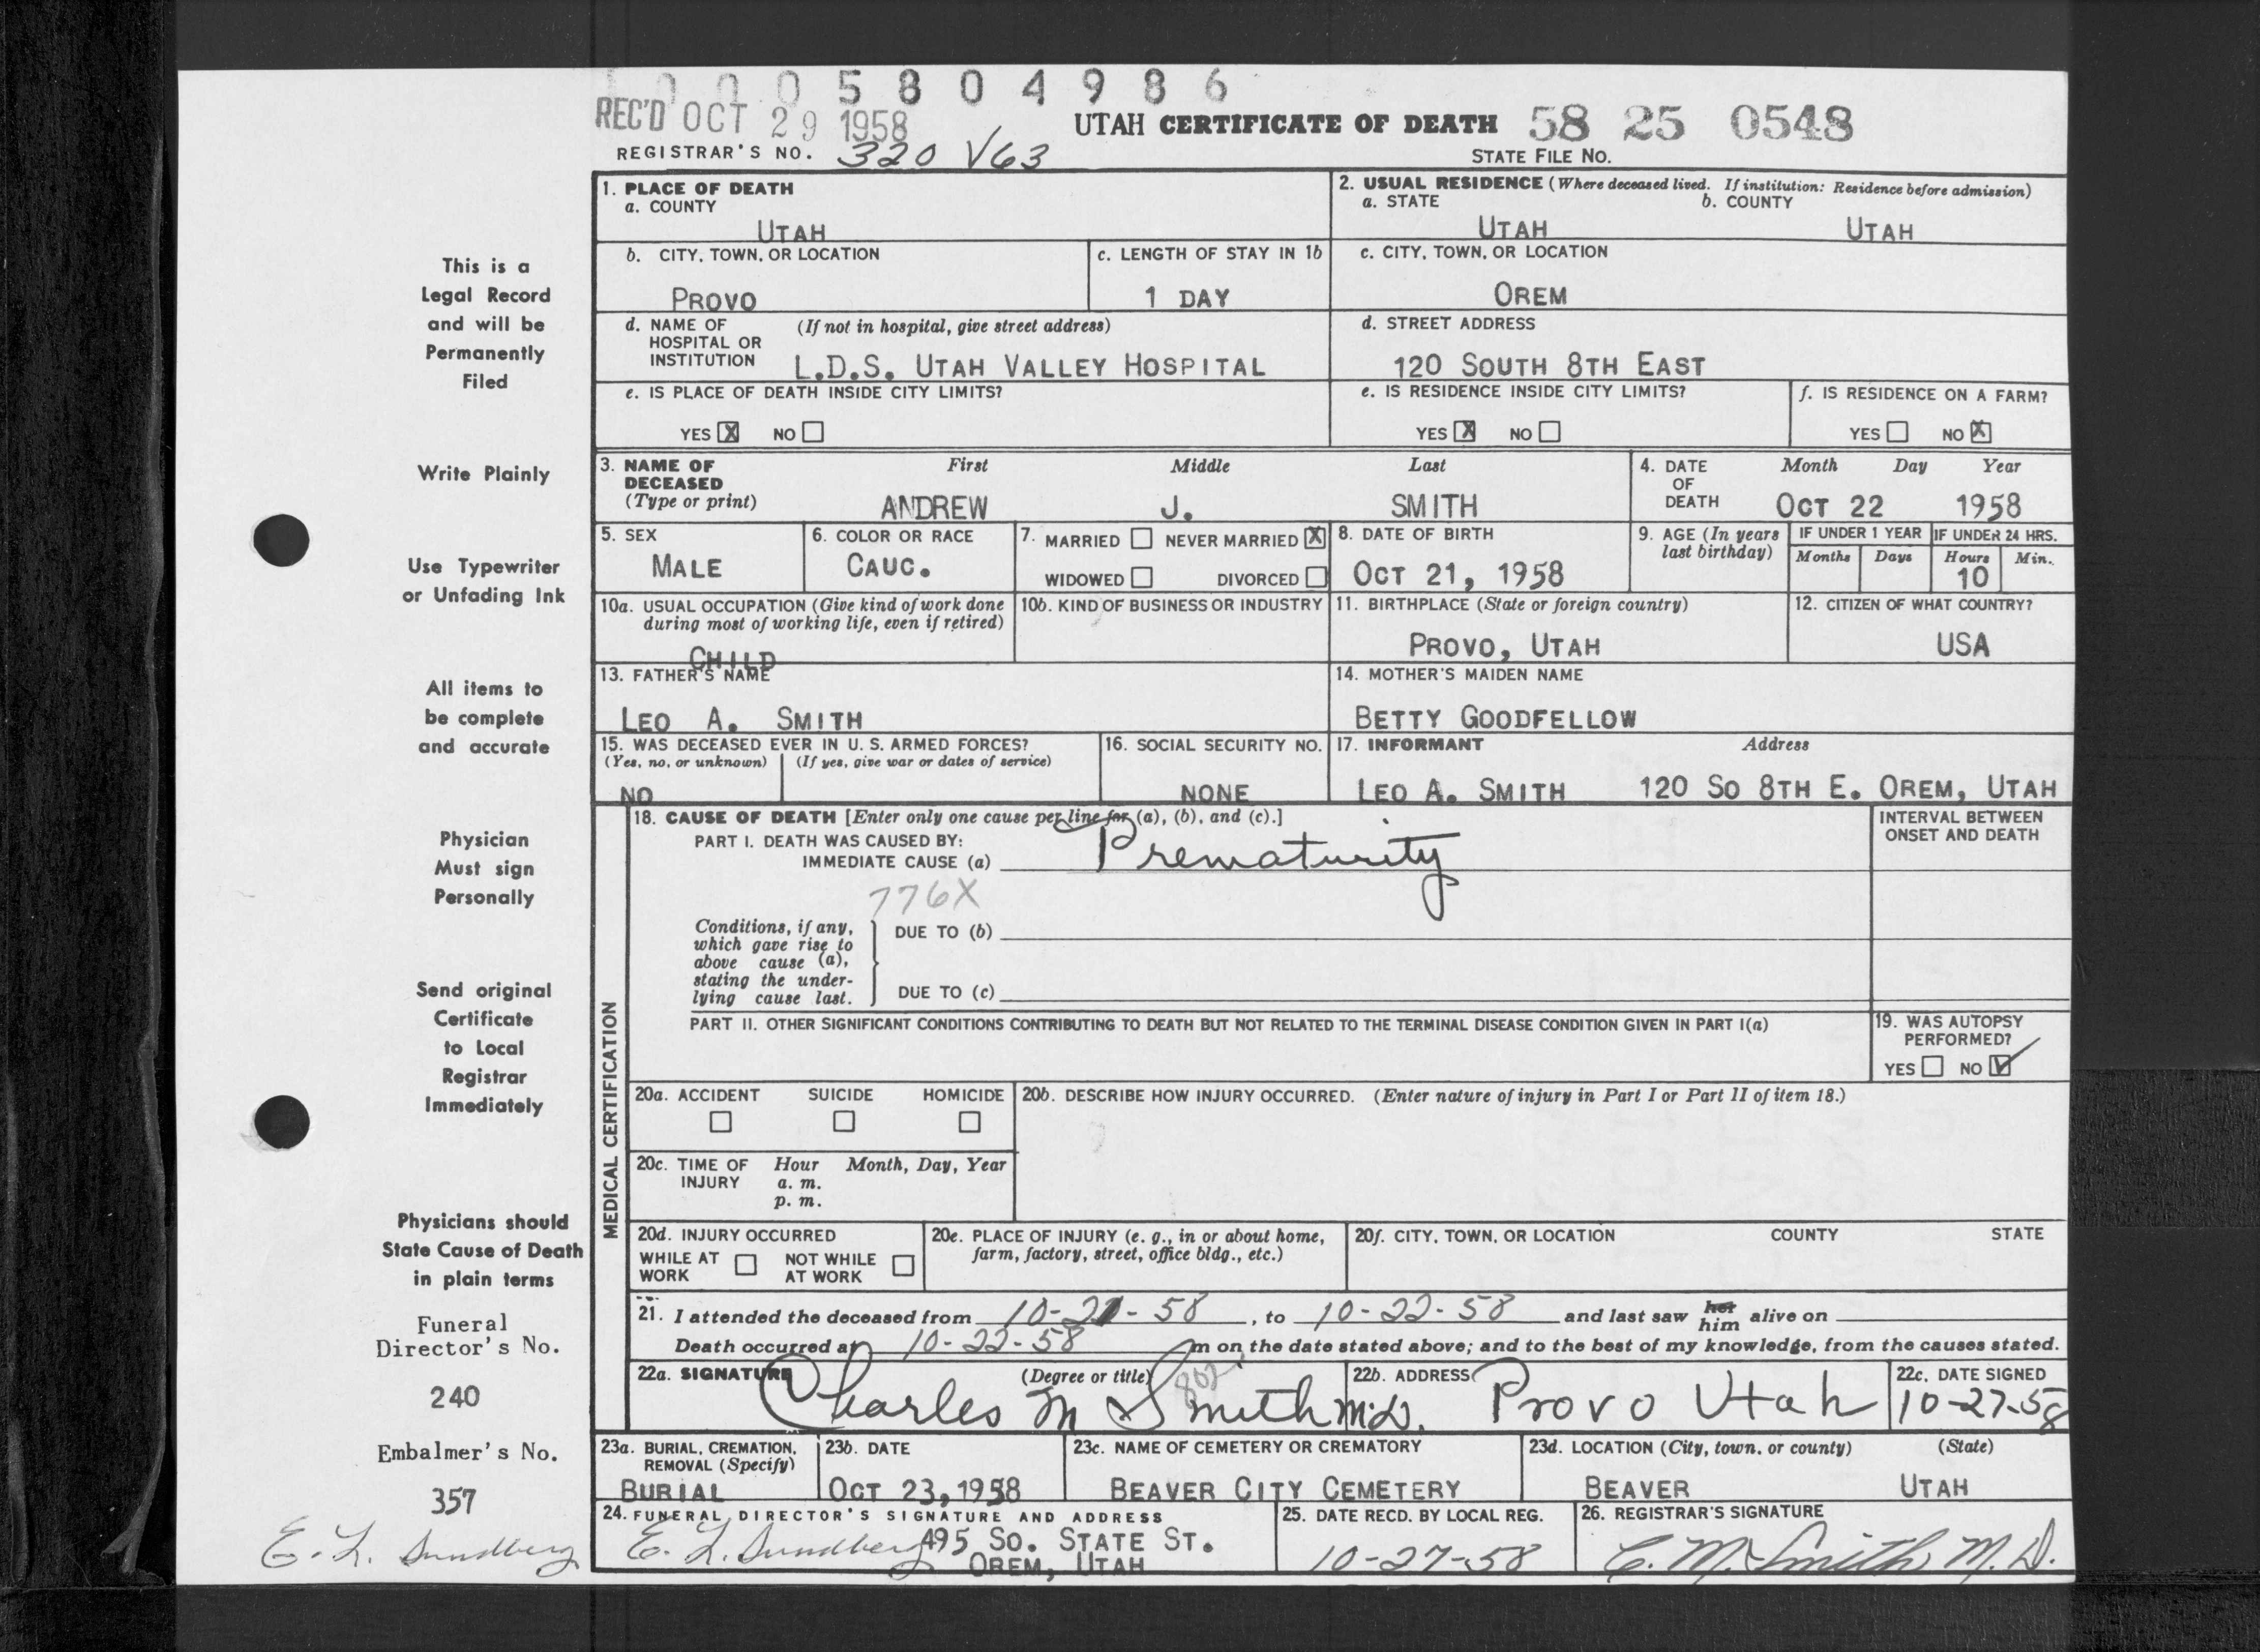 5804986
REC'D OCT 29 1958
UTAH CERTIFICATE OF DEATH 58 25 0548
REGISTRAR'S NO. 320 V63
STATE FILE NO.
This is a
Legal Record
and will be
Permanently
Filed
Write Plainly
Use Typewriter
or Unfading Ink
All items to
be complete
and accurate
Physician
Must sign
Personally
Send original
Certificate
to Local
Registrar
Immediately
Physicians should
State Cause of Death
in plain terms
Funeral
Director's No.
240
Embalmer's No.
357
E. L. Sundberg
1. PLACE OF DEATH
a. COUNTY
UTAH
2. USUAL RESIDENCE (Where deceased lived. If institution: Residence before admission)
a. STATE b. COUNTY
UTAH UTAH
b. CITY, TOWN, OR LOCATION
PROVO
c. LENGTH OF STAY IN 1b
1 DAY
c. CITY, TOWN, OR LOCATION
OREM
d. NAME OF (If not in hospital, give street address)
HOSPITAL OR
INSTITUTION L.D.S. UTAH VALLEY HOSPITAL
d. STREET ADDRESS
120 SOUTH 8TH EAST
e. IS PLACE OF DEATH INSIDE CITY LIMITS?
YES X NO
e. IS RESIDENCE INSIDE CITY LIMITS?
YES X NO
f. IS RESIDENCE ON A FARM?
YES NO X
3. NAME OF DECEASED (Type or print)
First Middle Last
ANDREW J. SMITH
4. DATE OF DEATH
Month Day Year
OCT 22 1958
5. SEX
MALE
6. COLOR OR RACE
CAUC.
7. MARRIED NEVER MARRIED X
WIDOWED DIVORCED
8. DATE OF BIRTH
OCT 21, 1958
9. AGE (In years last birthday)
IF UNDER 1 YEAR IF UNDER 24 HRS.
Months Days Hours Min.
10
10a. USUAL OCCUPATION (Give kind of work done
during most of working life, even if retired)
CHILD
10b. KIND OF BUSINESS OR INDUSTRY
11. BIRTHPLACE (State or foreign country)
PROVO, UTAH
12. CITIZEN OF WHAT COUNTRY?
USA
13. FATHER'S NAME
LEO A. SMITH
14. MOTHER'S MAIDEN NAME
BETTY GOODFELLOW
15. WAS DECEASED EVER IN U. S. ARMED FORCES?
(Yes, no, or unknown) (If yes, give war or dates of service)
NO
16. SOCIAL SECURITY NO.
NONE
17. INFORMANT Address
LEO A. SMITH 120 SO 8TH E. OREM, UTAH
MEDICAL CERTIFICATION
18. CAUSE OF DEATH [Enter only one cause per line for (a), (b), and (c).]
PART I. DEATH WAS CAUSED BY:
IMMEDIATE CAUSE (a) Prematurity
776X
INTERVAL BETWEEN
ONSET AND DEATH
Conditions, if any,
which gave rise to
above cause (a),
stating the under-
lying cause last.
DUE TO (b)
DUE TO (c)
PART II. OTHER SIGNIFICANT CONDITIONS CONTRIBUTING TO DEATH BUT NOT RELATED TO THE TERMINAL DISEASE CONDITION GIVEN IN PART I(a)
19. WAS AUTOPSY
PERFORMED?
YES NO
20a. ACCIDENT SUICIDE HOMICIDE
20b. DESCRIBE HOW INJURY OCCURRED. (Enter nature of injury in Part I or Part II of item 18.)
20c. TIME OF INJURY Hour Month, Day, Year
a. m.
p. m.
20d. INJURY OCCURRED
WHILE AT WORK NOT WHILE AT WORK
20e. PLACE OF INJURY (e. g., in or about home,
farm, factory, street, office bldg., etc.)
20f. CITY, TOWN, OR LOCATION COUNTY STATE
21. I attended the deceased from 10-21-58, to 10-22-58 and last saw her him alive on
Death occurred at 10-22-58 m on the date stated above; and to the best of my knowledge, from the causes stated.
22a. SIGNATURE (Degree or title)
Charles M Smith M.D.
22b. ADDRESS
Provo Utah
22c. DATE SIGNED
10-27-58
23a. BURIAL, CREMATION,
REMOVAL (Specify)
BURIAL
23b. DATE
OCT 23, 1958
23c. NAME OF CEMETERY OR CREMATORY
BEAVER CITY CEMETERY
23d. LOCATION (City, town, or county) (State)
BEAVER UTAH
24. FUNERAL DIRECTOR'S SIGNATURE AND ADDRESS
E. L. Sundberg 495 SO. STATE ST.
OREM, UTAH
25. DATE RECD. BY LOCAL REG.
10-27-58
26. REGISTRAR'S SIGNATURE
C. M. Smith, M.D.